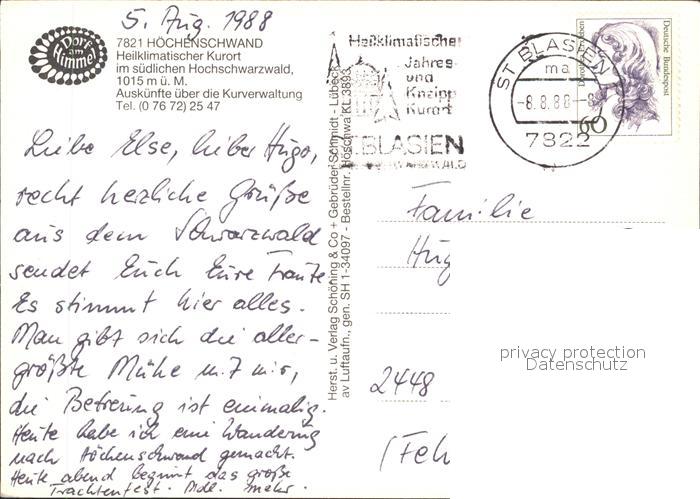 5. Aug. 1988
Dorf am Himmel
7821 HÖCHENSCHWAND
Heilklimatischer Kurort
im südlichen Hochschwarzwald,
1015 m ü. M.
Auskünfte über die Kurverwaltung
Tel. (0 76 72) 25 47
Heilklimatischer
Jahres-
und
Kneipp
Kurort
ST. BLASIEN
Deutsche Bundespost
60
ST BLASIEN
ma
-8.8.88--8
7822
Liebe Else, lieber Hugo,
recht herzliche Grüße
aus dem Schwarzwald
sendet Euch Eure Traute
Es stimmt hier alles.
Man gibt sich die aller-
größte Mühe m.7 mir,
die Betreung ist einmalig.
Heute habe ich eine Wanderung
nach Höchenschwand gemacht.
Heute abend beginnt das große
Trachtenfest. Mdl. mehr.
Herst. u. Verlag Schöning & Co + Gebrüder Schmidt - Lübeck
av Luftaufn., gen. SH 1-34097 - Bestellnr. Höschwa KL 3893
Familie
Hug
2448
(Feh
privacy protection
Datenschutz